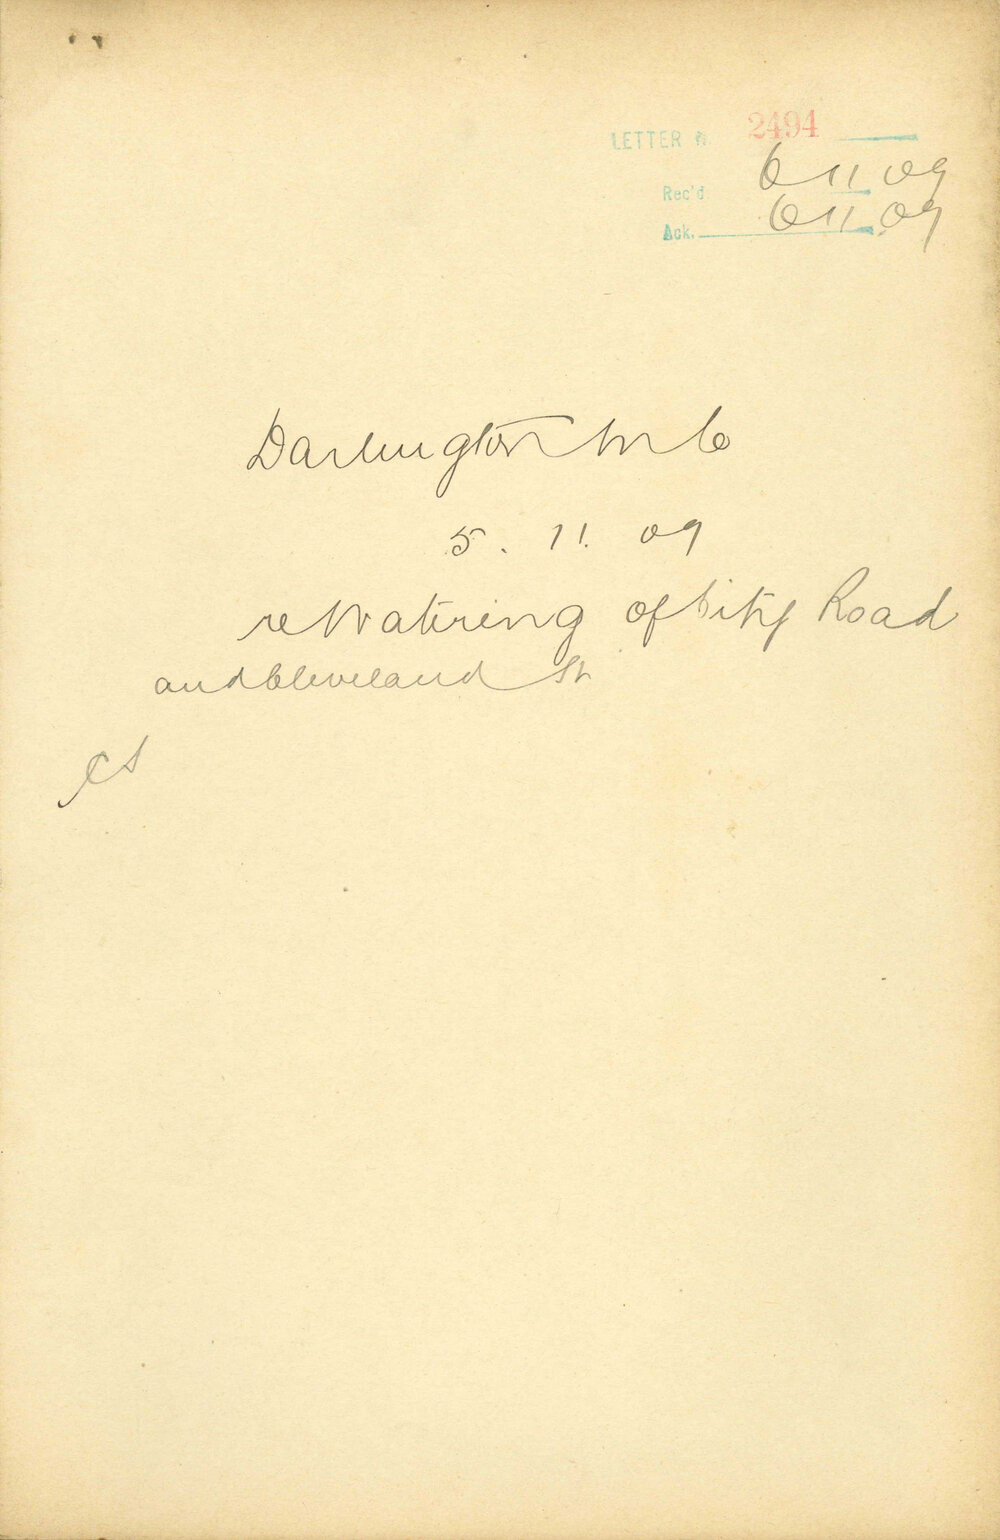 LETTER No. 2494
Rec'd 6 11 09
Ack. 6 11 09
Darlington M C
5. 11. 09
re Watering of City Road
and Cleveland St
CS